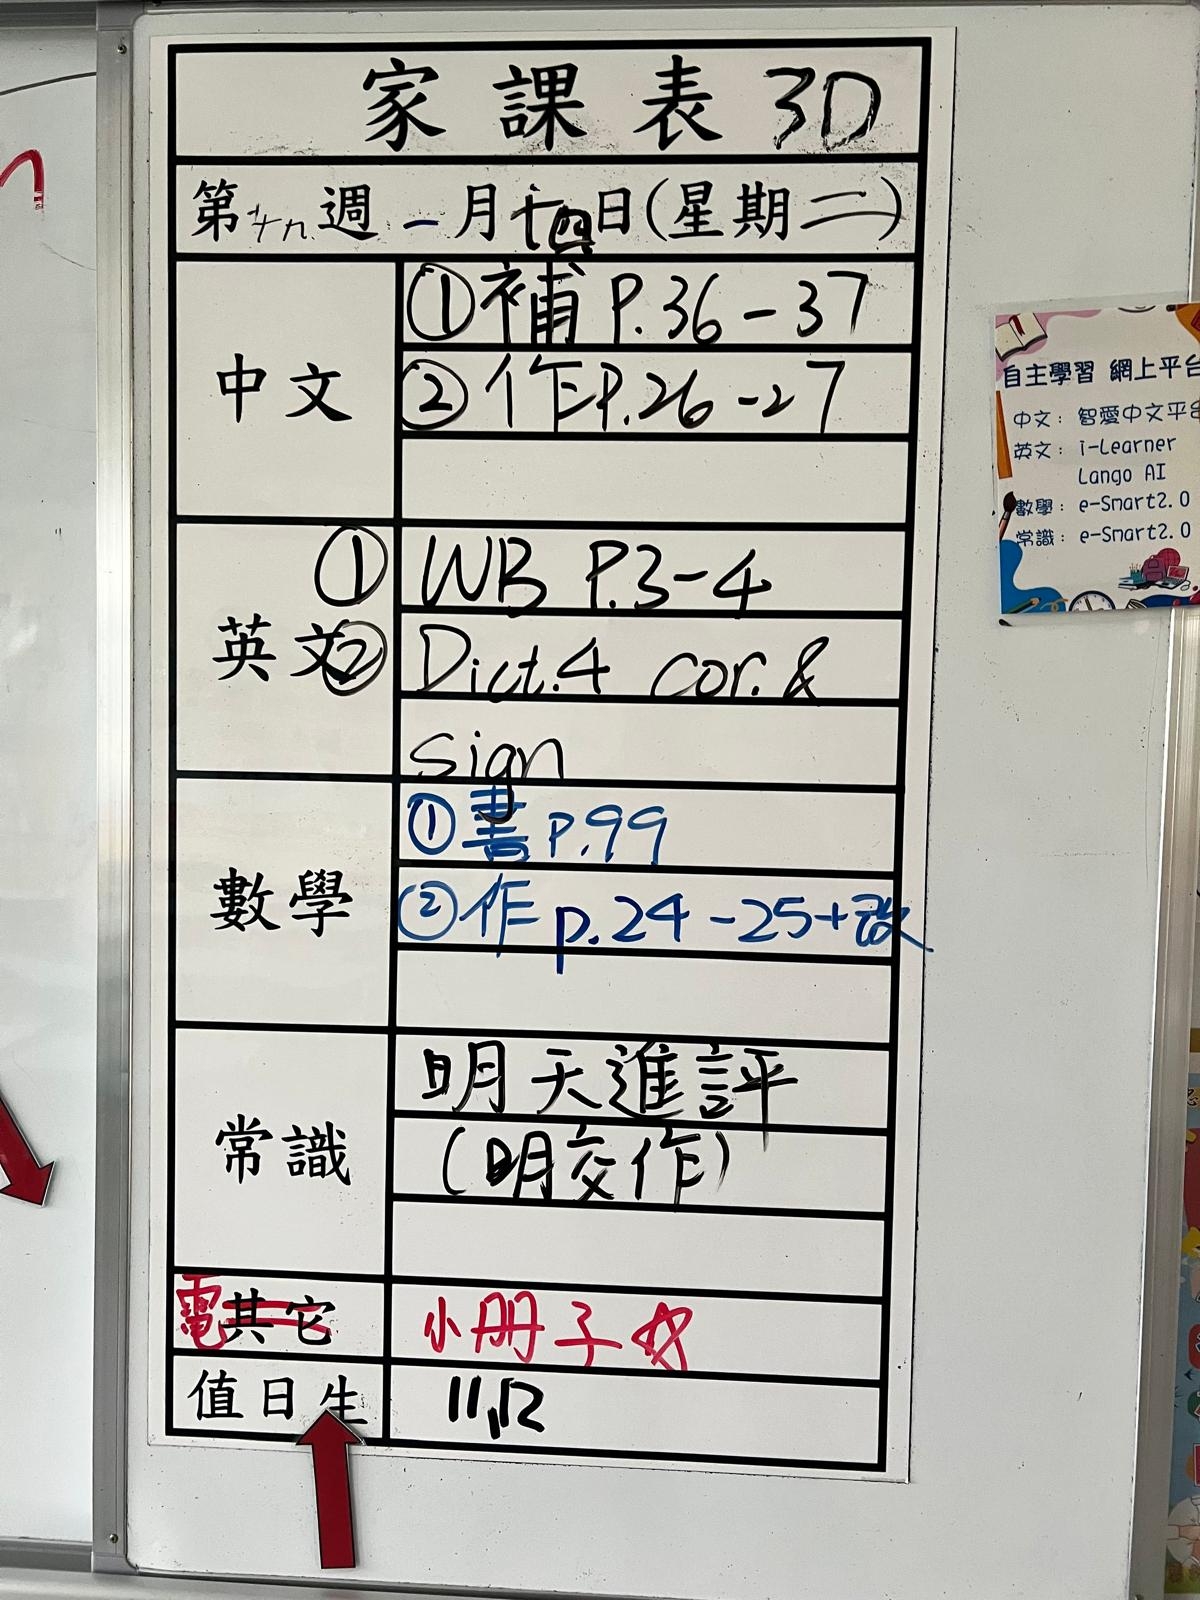 家課表 3D
第十九週 一月十四日(星期二)
中文
①補 P.36-37
②作P.26-27
英文
① WB P.3-4
② Dict.4 cor. &
sign
數學
①書 P.99
②作 p.24-25+改
常識
明天進評
(明交作)
電其它
小冊子☆
值日生
11,12
自主學習 網上平台
中文: 智愛中文平台
英文: i-Learner
Lango AI
數學: e-Smart2.0
常識: e-Smart2.0